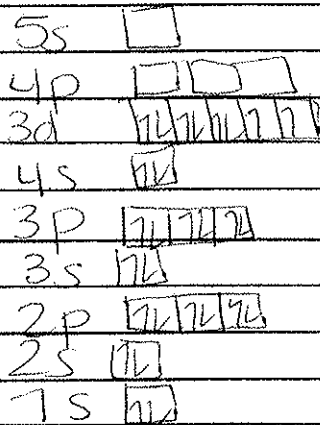 5s
4p
3d
4s
3p
3s
2p
2s
1s